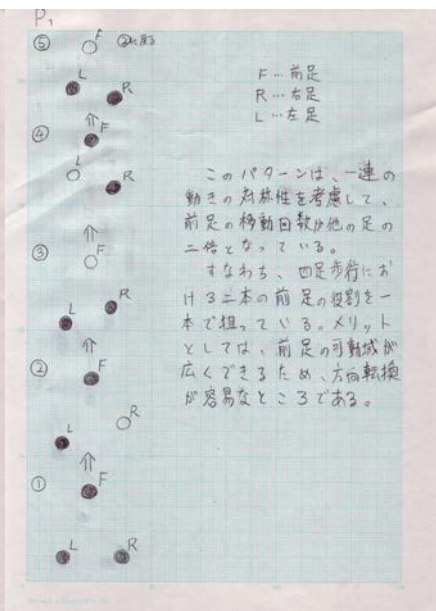 P,
⑤ F ②に戻る
L
R
④ F
L
R
③ F
R
L
② F
R
L
① F
L R
F…前足
R…右足
L…左足
このパターンは、一連の
動きの対称性を考慮して、
前足の移動回数が他の足の
二倍となっている。
すなわち、四足歩行にお
ける二本の前足の役割を一
本で担っている。メリット
としては、前足の可動域が
広くできるため、方向転換
が容易なところである。